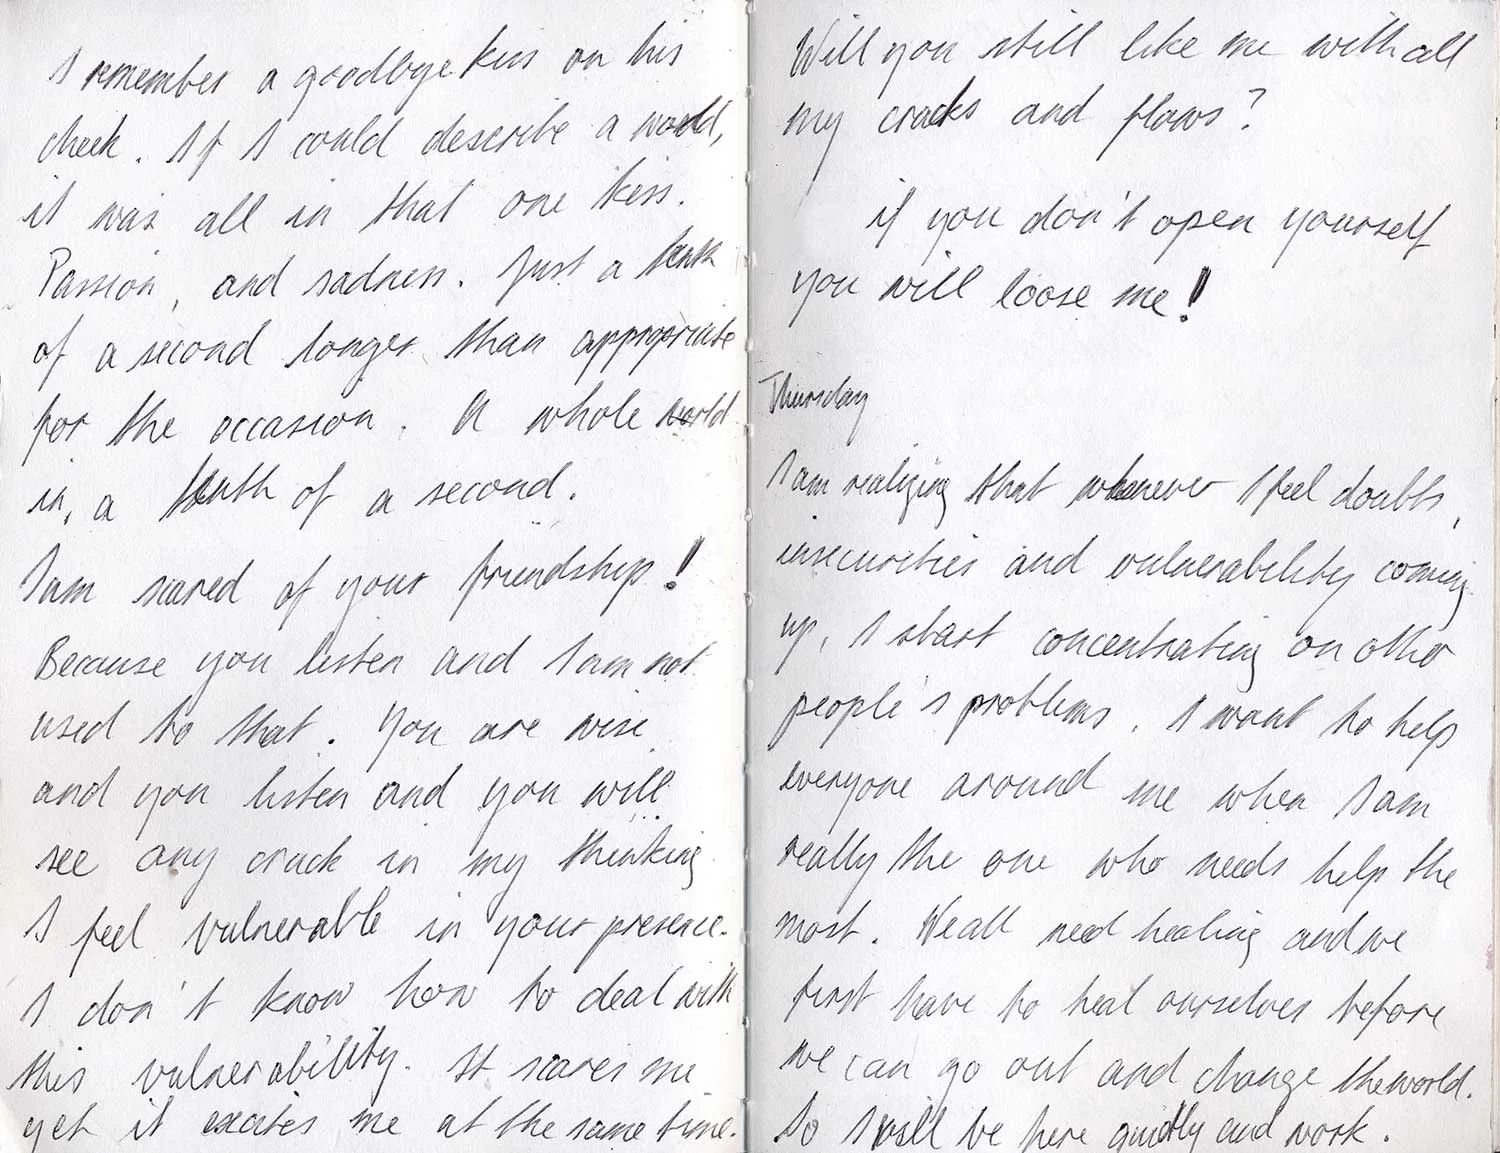 I remember a goodbye kiss on his
cheek. If I could describe a world,
it was all in that one kiss.
Passion, and sadness. Just a tenth
of a second longer than appropriate
for the occasion. A whole world
in, a tenth of a second.
I am scared of your friendship!
Because you listen and I am not
used to that. You are wise
and you listen and you will
see any crack in my thinking
I feel vulnerable in your presence.
I don't know how to deal with
this vulnerability. It scares me
yet it excites me at the same time.
Will you still like me with all
my cracks and flaws?
if you don't open yourself
you will loose me!
Thursday
I am realizing that whenever I feel doubts,
insecurities and vulnerability coming
up, I start concentrating on other
people's problems. I want to help
everyone around me when I am
really the one who needs help the
most. We all need healing and we
first have to heal ourselves before
we can go out and change the world.
So I will be here quietly and work.